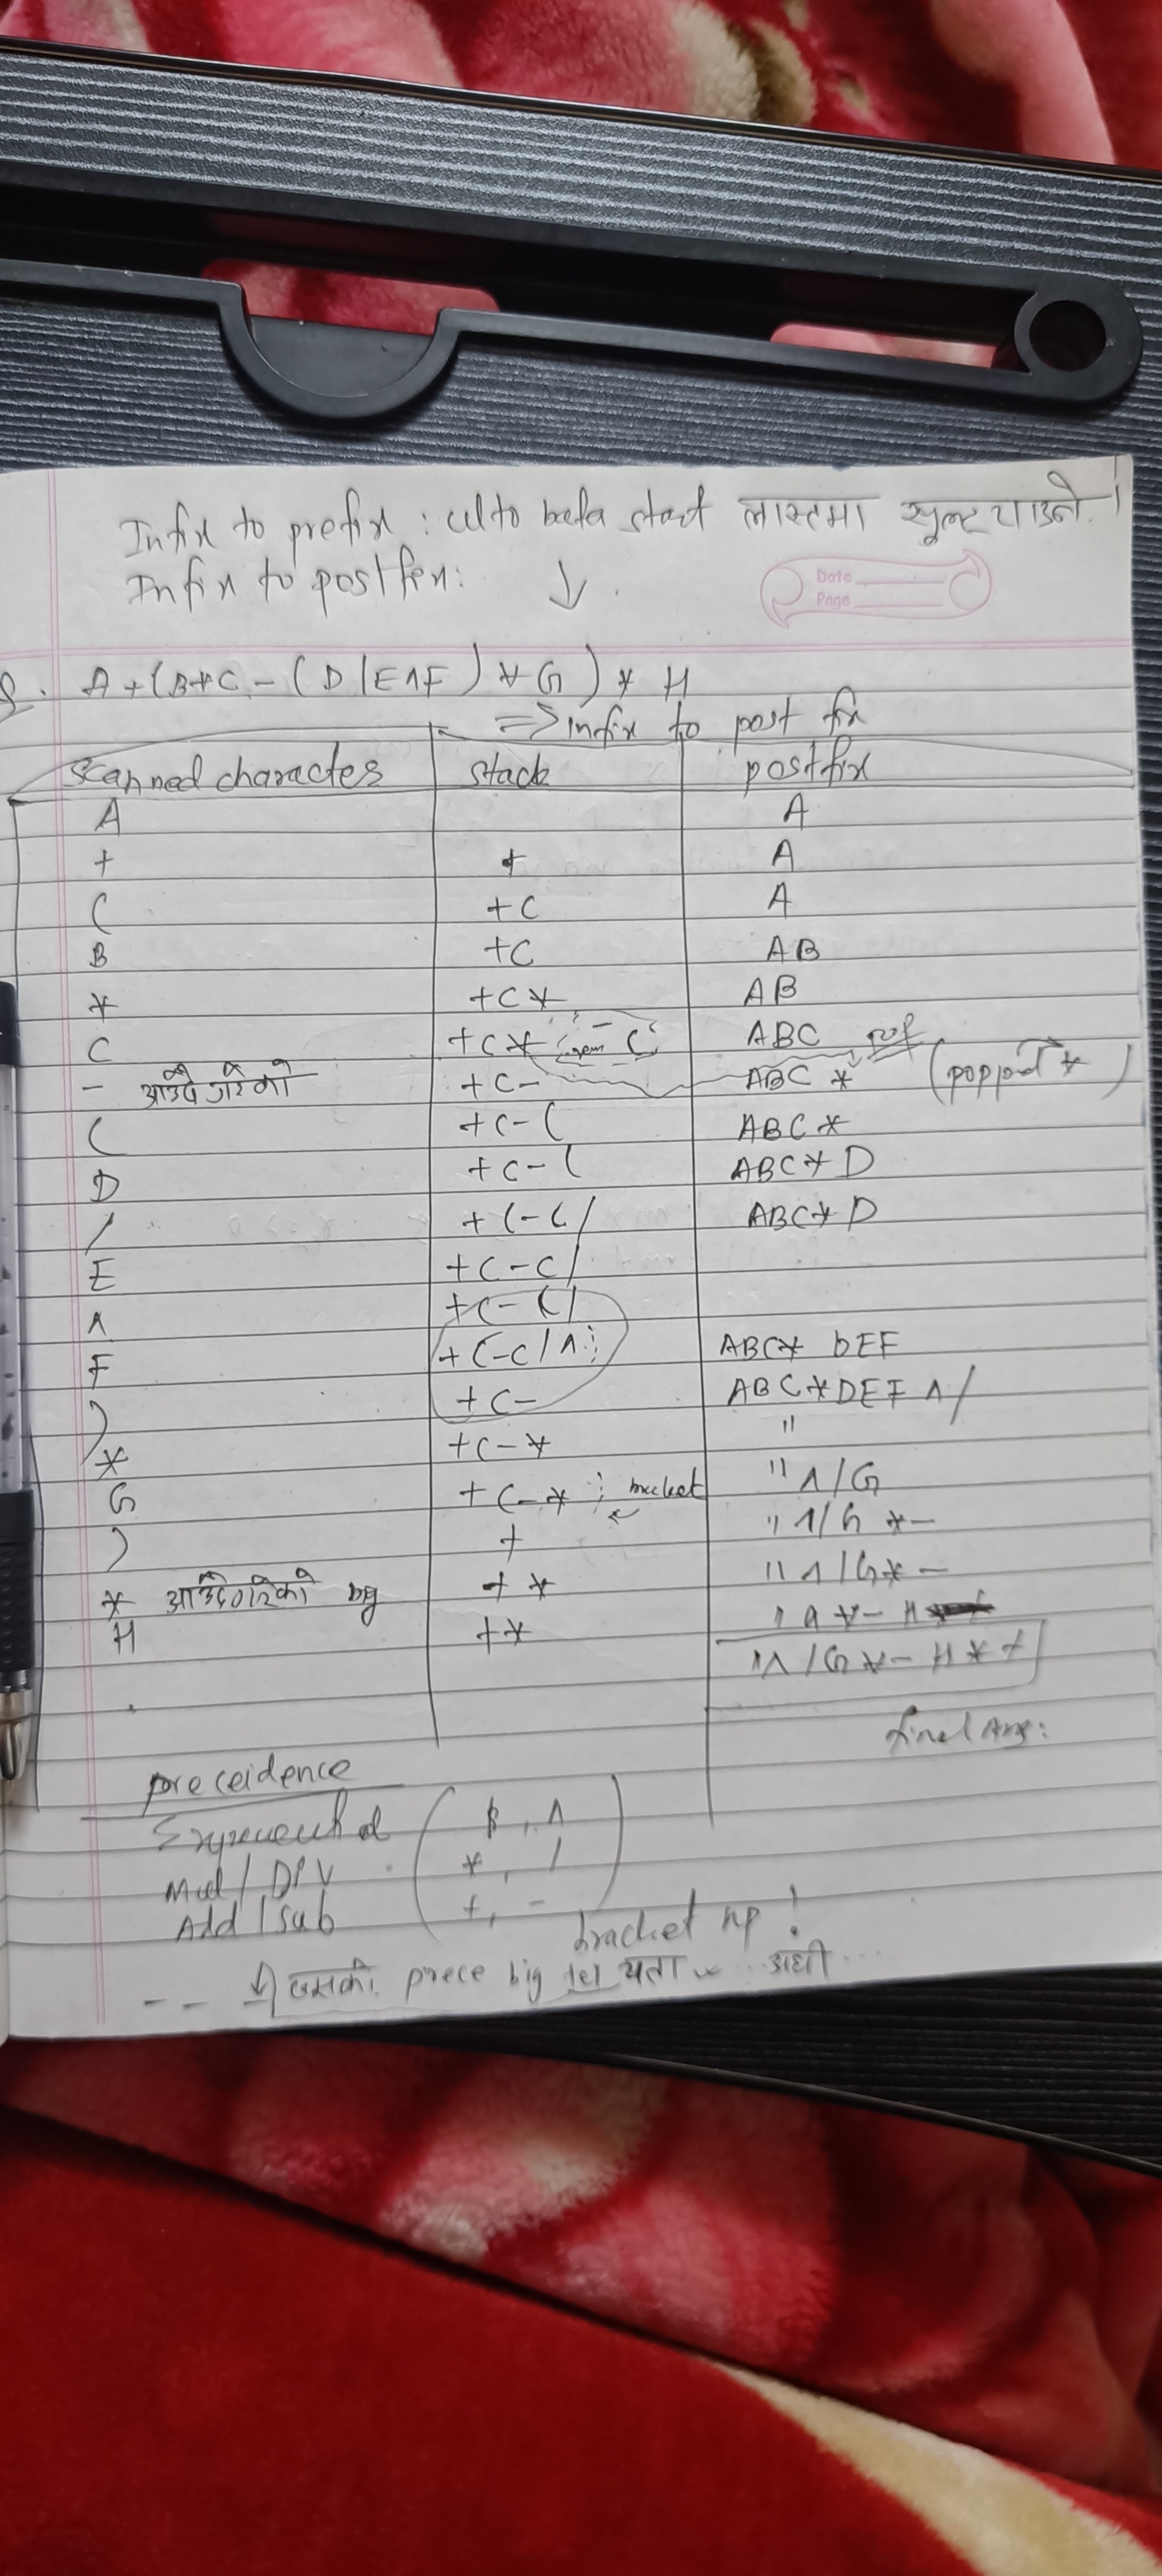 Infix to prefix : ulto bata start लास्टमा सुल्ट्याउने ।
Infix to postfix : ↓
Date
Page
Q. A + (B * C - ( D / E ^ F ) * G ) * H
=> infix to post fix
scanned character stack postfix
A A
+ + A
( + ( A
B + ( AB
* + ( * AB
C + ( * ABC
- आउँदै गरेको + ( - ABC * (popped *)
( + ( - ( ABC *
D + ( - ( ABC * D
/ + ( - ( / ABC * D
E + ( - ( /
^ + ( - ( /
F + ( - ( / ^ ABC * DEF
) + ( - ABC * DEF ^ /
* + ( - * "
G + ( - * bracket " ^ / G
) + " ^ / G * -
* आउँदैगरेको big + * " ^ / G * -
H + * " ^ * - H
" ^ / G * - H * +
final Ans :
preceidence
Exponential ( $ , ^
Mul / DIV * , /
Add / Sub + , - )
bracket np !
जसको prece big त्यो यता अघी ...